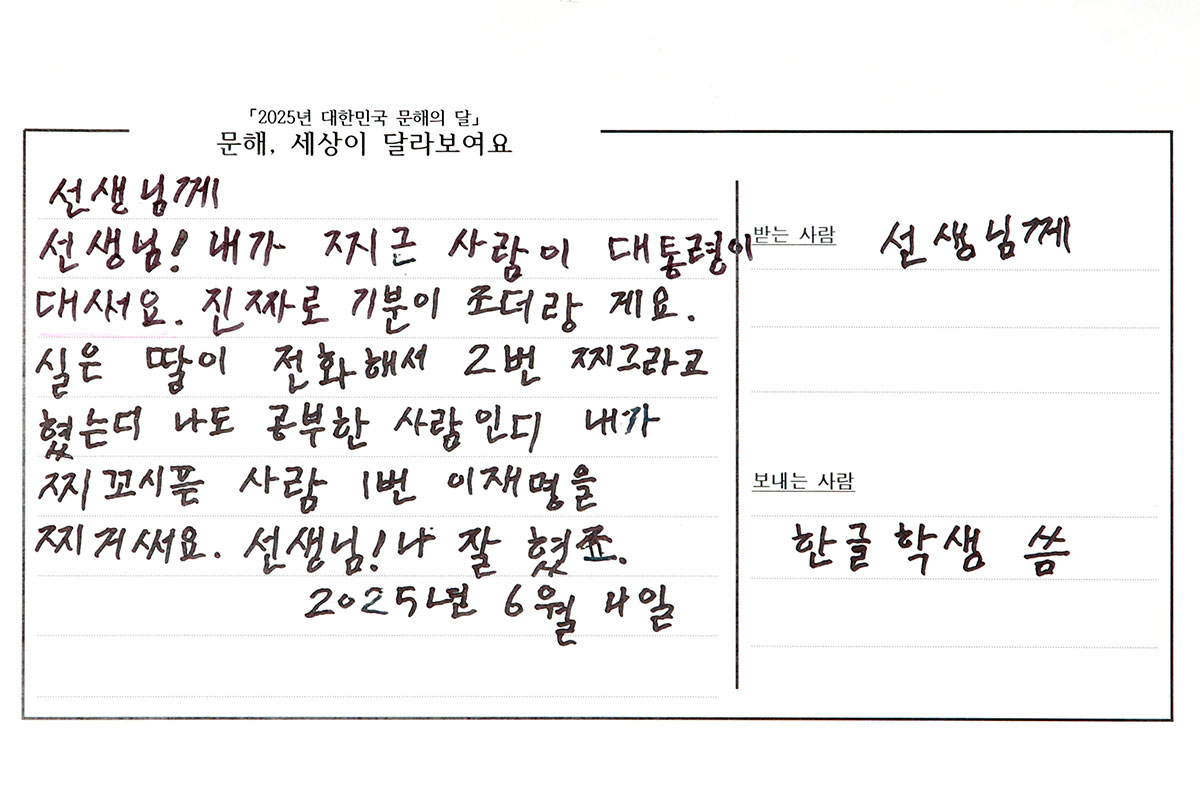 「2025년 대한민국 문해의 달」
문해, 세상이 달라보여요
선생님께
선생님! 내가 찌근 사람이 대통령이
대써요. 진짜로 기분이 조더랑 게요.
실은 딸이 전화해서 2번 찌그라고
혔는디 나도 공부한 사람인디 내가
찌꼬시픈 사람 1번 이재명을
찌거써요. 선생님! 나 잘 혔죠.
2025년 6월 4일
받는 사람
선생님께
보내는 사람
한글학생 씀